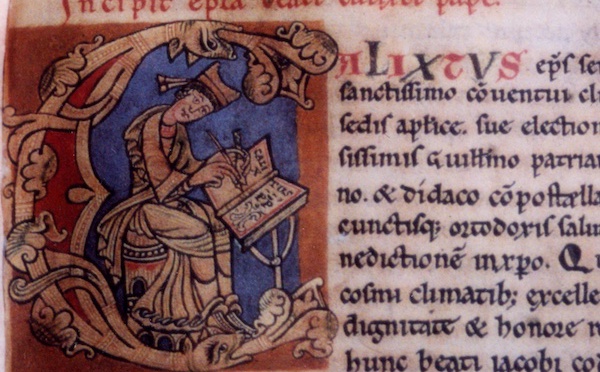 Incipit epła beati calixti pape.
CALIXTVS ep̃s ser
sanctissimo cõuentui cl
sedis aplice. sue election
sissimis Guillmo patriar
no. & didaco cõpostella
cunctisq; ortodoxis salu
nedictionẽ in xp̃o. Qu
cosmi climatib; excelle
dignitate & honore r
hunc beati iacobi cod